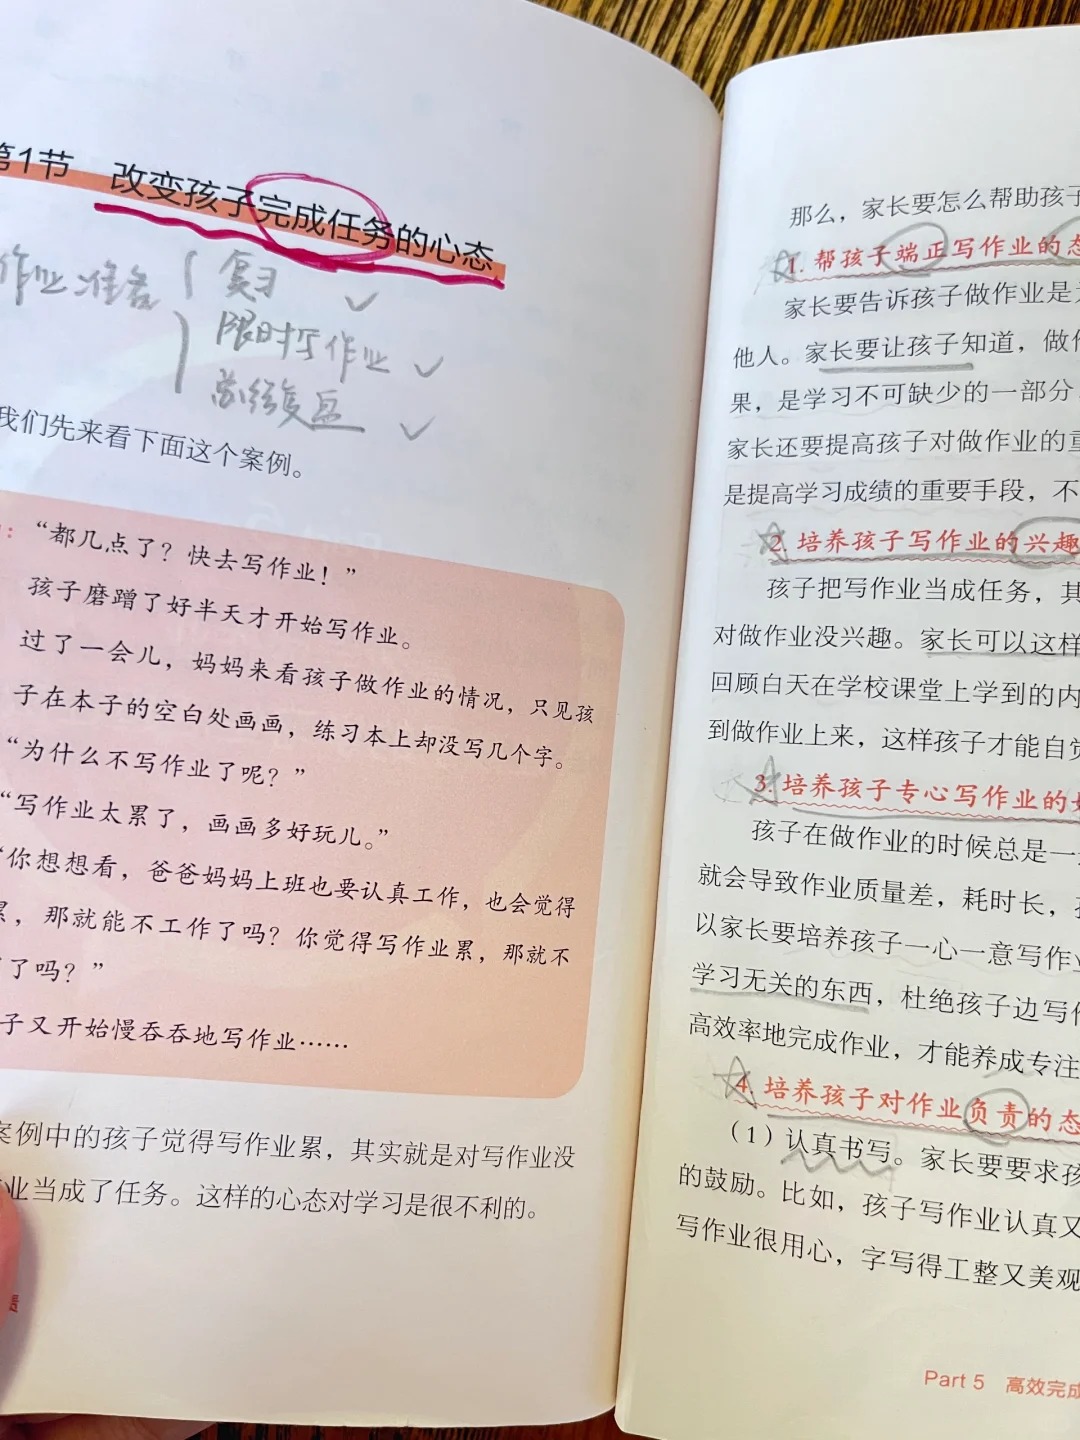 第1节 改变孩子完成任务的心态
作业准备
复习
限时写作业
总结复盘
我们先来看下面这个案例。
：“都几点了？快去写作业！”
孩子磨蹭了好半天才开始写作业。
过了一会儿，妈妈来看孩子做作业的情况，只见孩
子在本子的空白处画画，练习本上却没写几个字。
“为什么不写作业了呢？”
“写作业太累了，画画多好玩儿。”
“你想想看，爸爸妈妈上班也要认真工作，也会觉得
累，那就能不工作了吗？你觉得写作业累，那就不
了吗？”
子又开始慢吞吞地写作业……
案例中的孩子觉得写作业累，其实就是对写作业没
业当成了任务。这样的心态对学习是很不利的。
责
那么，家长要怎么帮助孩子
1. 帮孩子端正写作业的态
家长要告诉孩子做作业是为
他人。家长要让孩子知道，做作
果，是学习不可缺少的一部分
家长还要提高孩子对做作业的重
是提高学习成绩的重要手段，不
2. 培养孩子写作业的兴趣
孩子把写作业当成任务，其
对做作业没兴趣。家长可以这样
回顾白天在学校课堂上学到的内
到做作业上来，这样孩子才能自觉
3. 培养孩子专心写作业的
孩子在做作业的时候总是一
就会导致作业质量差，耗时长，
以家长要培养孩子一心一意写作业
学习无关的东西，杜绝孩子边写作
高效率地完成作业，才能养成专注
4. 培养孩子对作业负责的态
（1）认真书写。家长要要求孩
的鼓励。比如，孩子写作业认真又
写作业很用心，字写得工整又美观
Part 5 高效完成